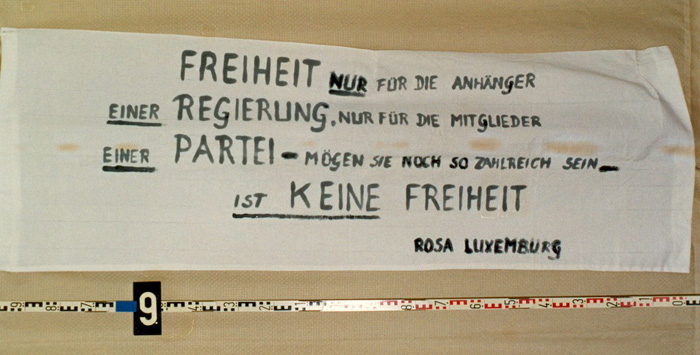 FREIHEIT NUR FÜR DIE ANHÄNGER
EINER REGIERUNG, NUR FÜR DIE MITGLIEDER
EINER PARTEI - MÖGEN SIE NOCH SO ZAHLREICH SEIN -
IST KEINE FREIHEIT
ROSA LUXEMBURG
9